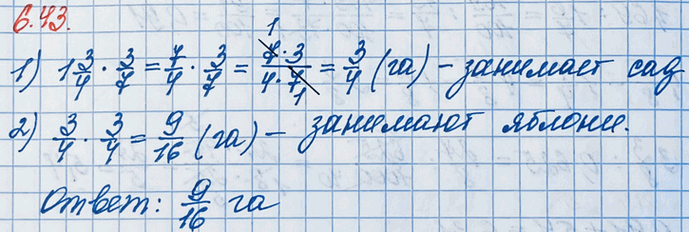 6.43.
1) 1 3/4 · 3/7 = 7/4 · 3/7 = 7·3/4·7 = 3/4 (га) – занимает сад
2) 3/4 · 3/4 = 9/16 (га) – занимают яблони.
Ответ: 9/16 га